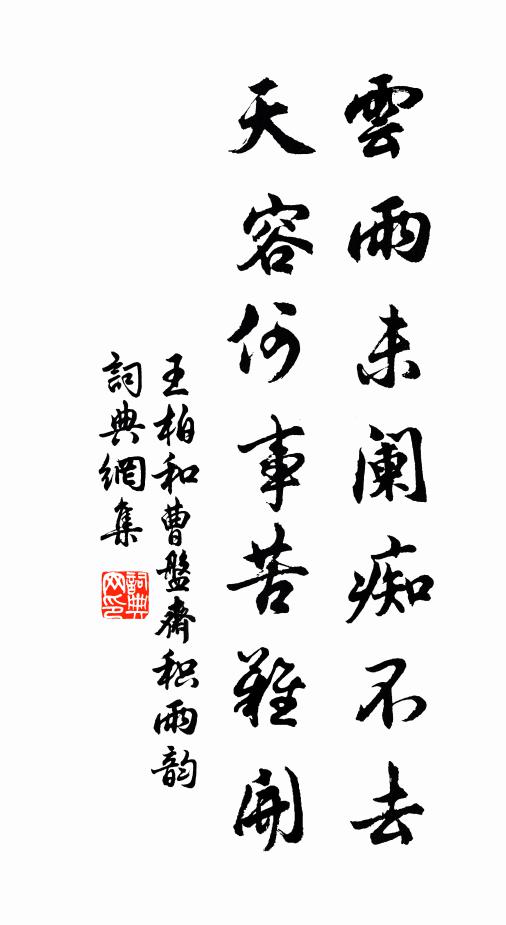 雲雨未阑痴不去
天容何事苦難開
王柏和曹盤齋积雨韵
詞典網集
詞典网印